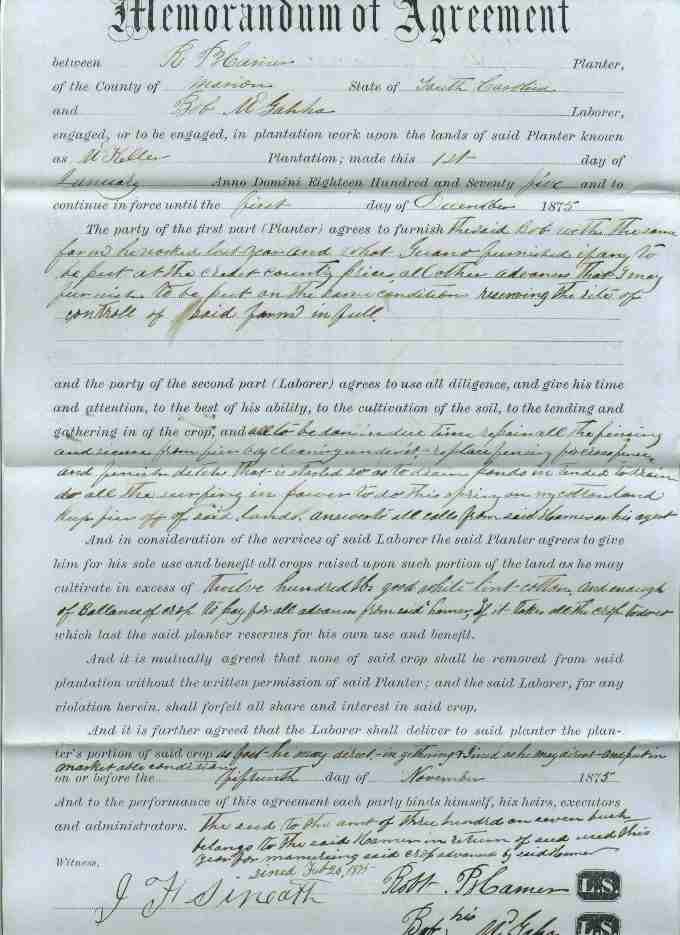 Memorandum of Agreement
between R P Hamer Planter,
of the County of Marion State of South Carolina
and Bob McGahha Laborer,
engaged, or to be engaged, in plantation work upon the lands of said Planter known
as McKeller Plantation; made this 1st day of
January Anno Domini Eighteen Hundred and Seventy five and to
continue in force until the first day of December 1875
The party of the first part (Planter) agrees to furnish the said Bob with the same
farm he worked last year and what Guano furnished if any to
be put at the credit county prices all other advances that I may
furnish to be put on the same condition reserving the rite of
controll of said farm in full.
and the party of the second part (Laborer) agrees to use all diligence, and give his time
and attention, to the best of his ability, to the cultivation of the soil, to the tending and
gathering in of the crop, and all to be don in due time repair all the fencing
and secure from fire by cleaning under it, replace fencing
and furnish ditches that is started so as to drain lands intended to drain
do all the in power to do this spring on my cotton land
keep fire off of said lands. answer to all calls from said Hamer or his agent
And in consideration of the services of said Laborer the said Planter agrees to give
him for his sole use and benefit all crops raised upon such portion of the land as he may
cultivate in excess of twelve hundred lbs good white lint cotton, and enough
of Ballance of crop to pay for all advances from said Hamer, if it takes all the crop to do it
which last the said planter reserves for his own use and benefit.
And it is mutually agreed that none of said crop shall be removed from said
plantation without the written permission of said Planter; and the said Laborer, for any
violation herein, shall forfeit all share and interest in said crop.
And it is further agreed that the Laborer shall deliver to said planter the plan-
ter's portion of said crop as fast he may direct, in gethering & Gined as he may direct and put in
market able condition
on or before the fifteenth day of November 1875
And to the performance of this agreement each party binds himself, his heirs, executors
and administrators. The seed to the amt of three hundred an seven bush
belongs to the said Hamer in return of seed used this
year for manureing said crop advanced by said Hamer
Witness, sined Feb 20, 1875
J H Sineath Robt. P. Hamer L.S.
Bob his McGahha L.S.